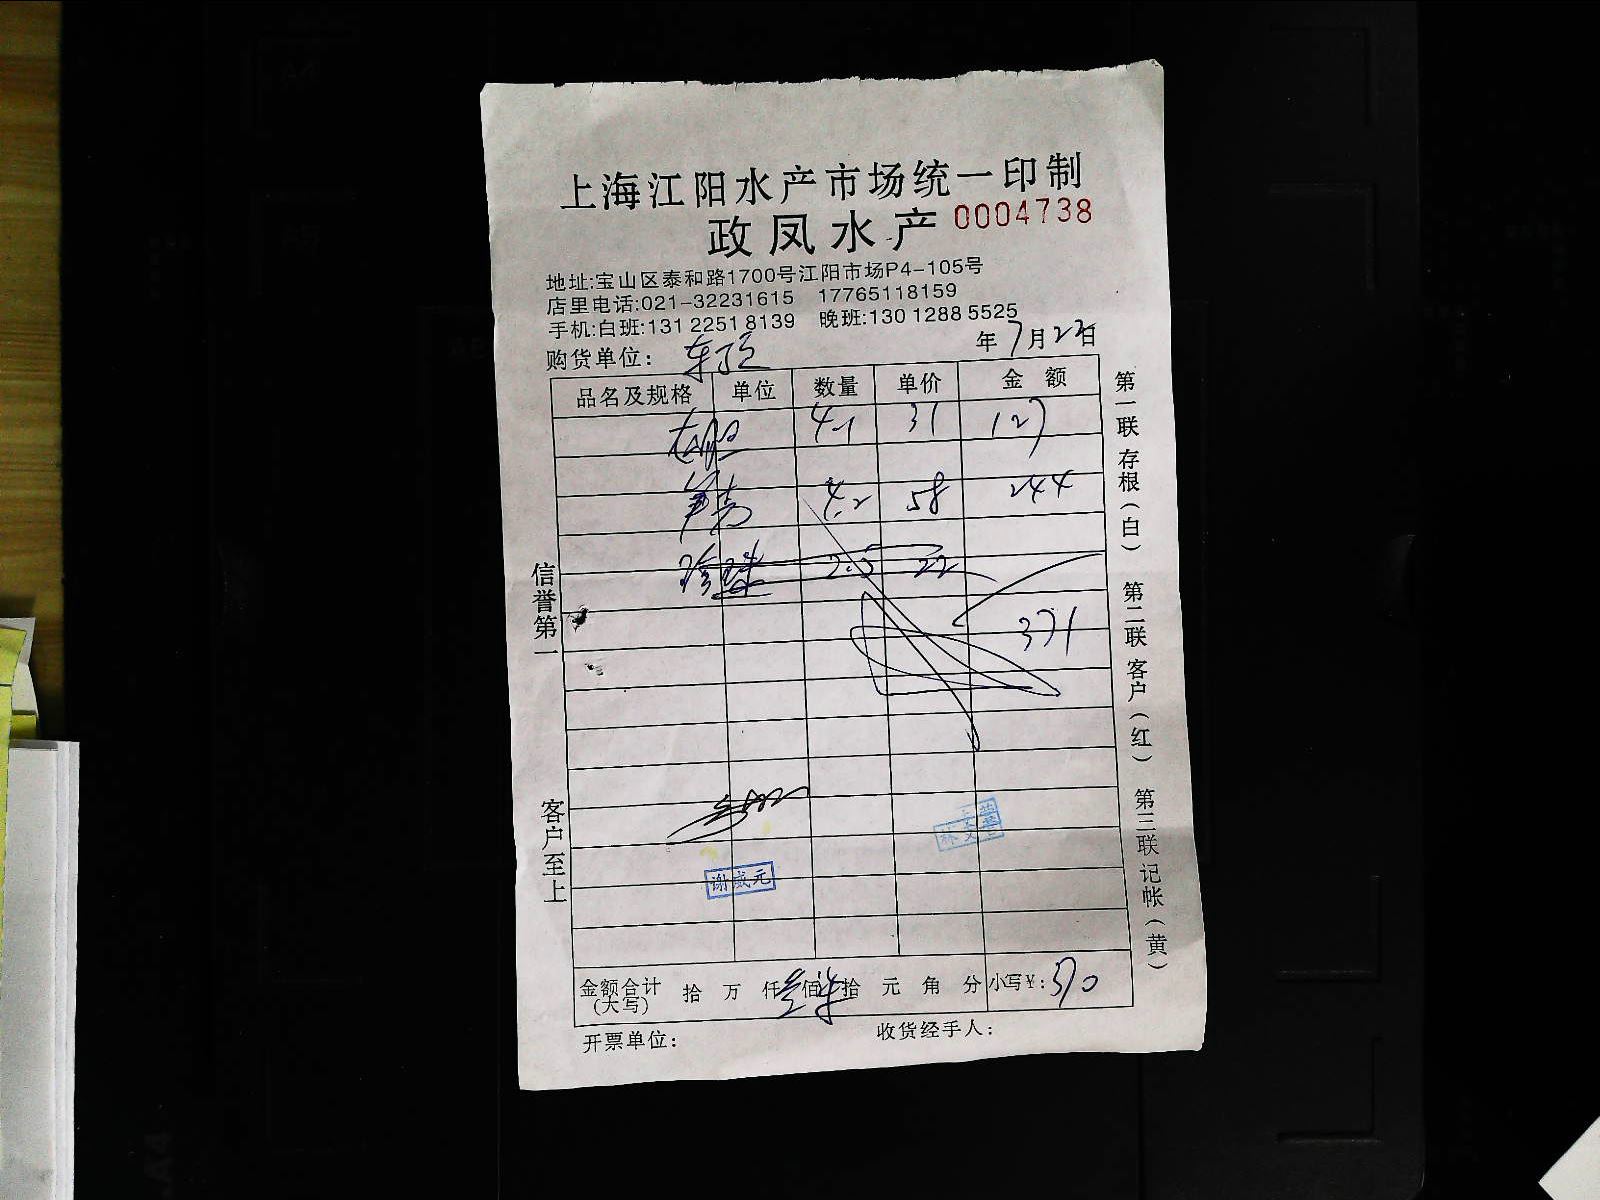 上海江阳水产市场统一印制
政凤水产 0004738
地址:宝山区泰和路1700号江阳市场P4-105号
店里电话:021-32231615 17765118159
手机:白班:131 2251 8139 晚班:130 1288 5525
购货单位: 年7月22日
品名及规格 单位 数量 单价 金额
4.1 31 127
4.2 58 244
珍珠 2.5 22
371
谢威元
金额合计(大写) 拾万仟叁佰柒拾元角分 小写¥:370
开票单位: 收货经手人:
信誉第一
客户至上
第一联存根(白) 第二联客户(红) 第三联记帐(黄)